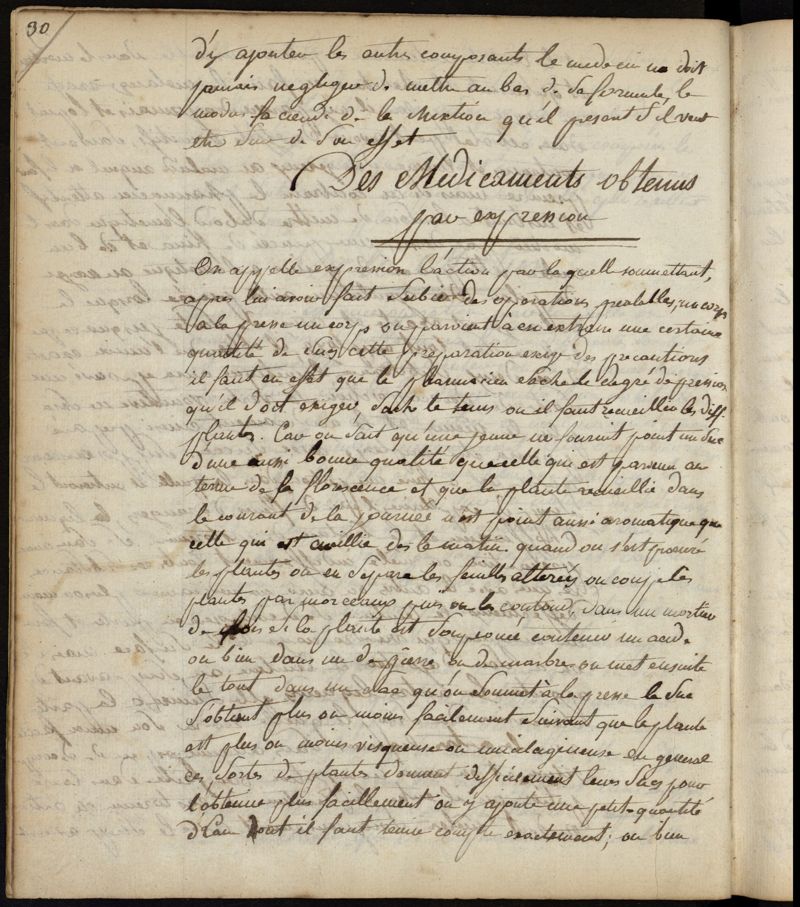 30
d'y ajouter les autres composants le medecin ne doit
jamais negliger de mettre au bas de sa formule, le
modus faciendi de la Mixtion qu'il prescrit s'il veut
etre sur de son effet
Des Medicaments obtenus
par expression
On appelle expression l'action par laquelle soumettant,
apres lui avoir fait subir des operations prealables, un corps
a la presse un corps on parvient à en extraire une certaine
quantité de suc, cette preparation exige des precautions
il faut en effet que le pharmacien sache le degré de pression
qu'il doit exiger, sache le tems ou il faut recueillir les diff.
plantes. Car on sait qu'une jeune ne fournit point un suc
d'une aussi bonne qualité que celle qui est parvenu au
terme de sa florescence et que la plante recueillie dans
le courant de la journée n'est point aussi aromatique que
celle qui est cueillie des le matin. quand on s'est procuré
les plantes on en separe les feuilles alterées on coupe les
plantes par morceaux puis on les contond, dans un mortier
de bois si la plante est soupçonnée contenir un acide
ou bien dans un de pierre ou de marbre on met ensuite
le tout dans un sac qu'on soumet à la presse le suc
s'obtient plus ou moins facilement suivant que la plante
est plus ou moins visqueuse ou mucilagineuse en general
ces sortes de plantes donnent difficilement leurs sucs pour
l'obtenir plus facillement on y ajoute une petite quantité
d'Eau dont il faut tenir compte exactement; ou bien